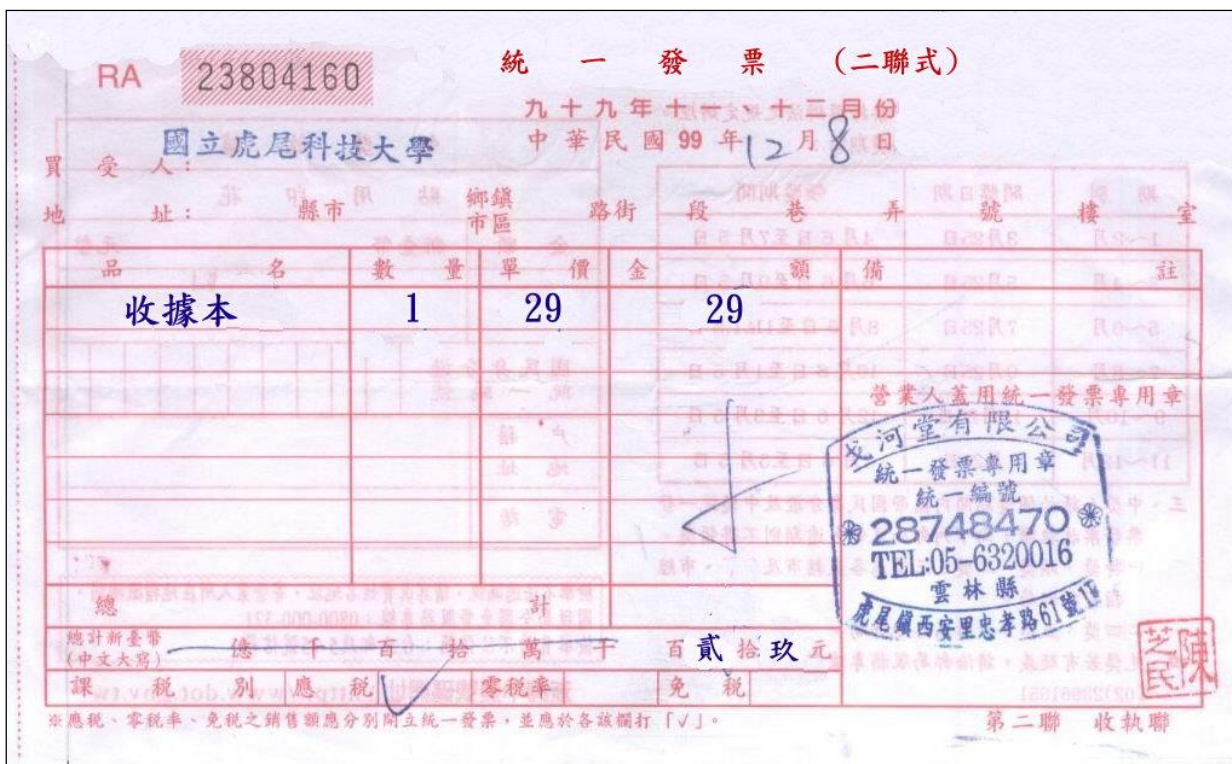 統一發票(二聯式)
RA 23804160
九十九年十一、十二月份
中華民國99年12月8日
買受人: 國立虎尾科技大學
地址: 縣市 鄉鎮市區 路街 段 巷 弄 號 樓 室
品名 數量 單價 金額 備註
收據本 1 29 29
營業人蓋用統一發票專用章
戈河堂有限公司
統一發票專用章
統一編號
28748470
TEL:05-6320016
雲林縣
虎尾鎮西安里忠孝路61號1F
總計
總計新臺幣
(中文大寫) 億 千 百 拾 萬 千 百 貳 拾 玖 元
陳芝民
課稅別 應稅 ✓ 零稅率 免稅
※應稅、零稅率、免稅之銷售額應分別開立統一發票,並應於各該欄打「√」。
第二聯 收執聯